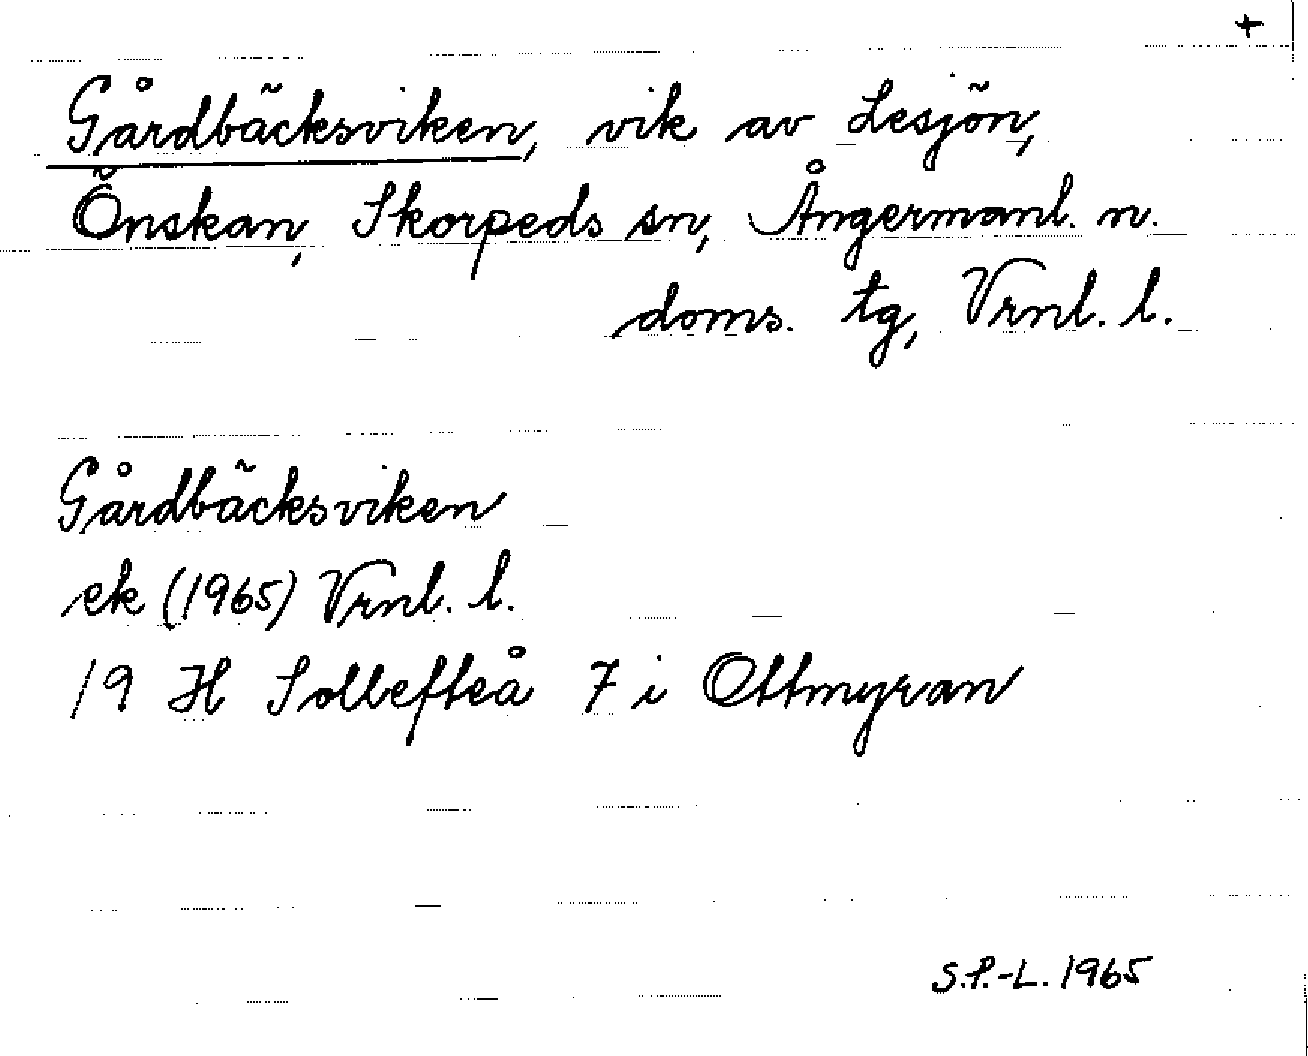 +
Gårdbäcksviken, vik av Lesjön,
Önskan, Skorpeds sn, Ångermanl. n.
doms. tg, Vrnl. l.
Gårdbäcksviken
ek (1965) Vrnl. l.
19 H Sollefteå 7 i Ottmyran
S.P.-L. 1965